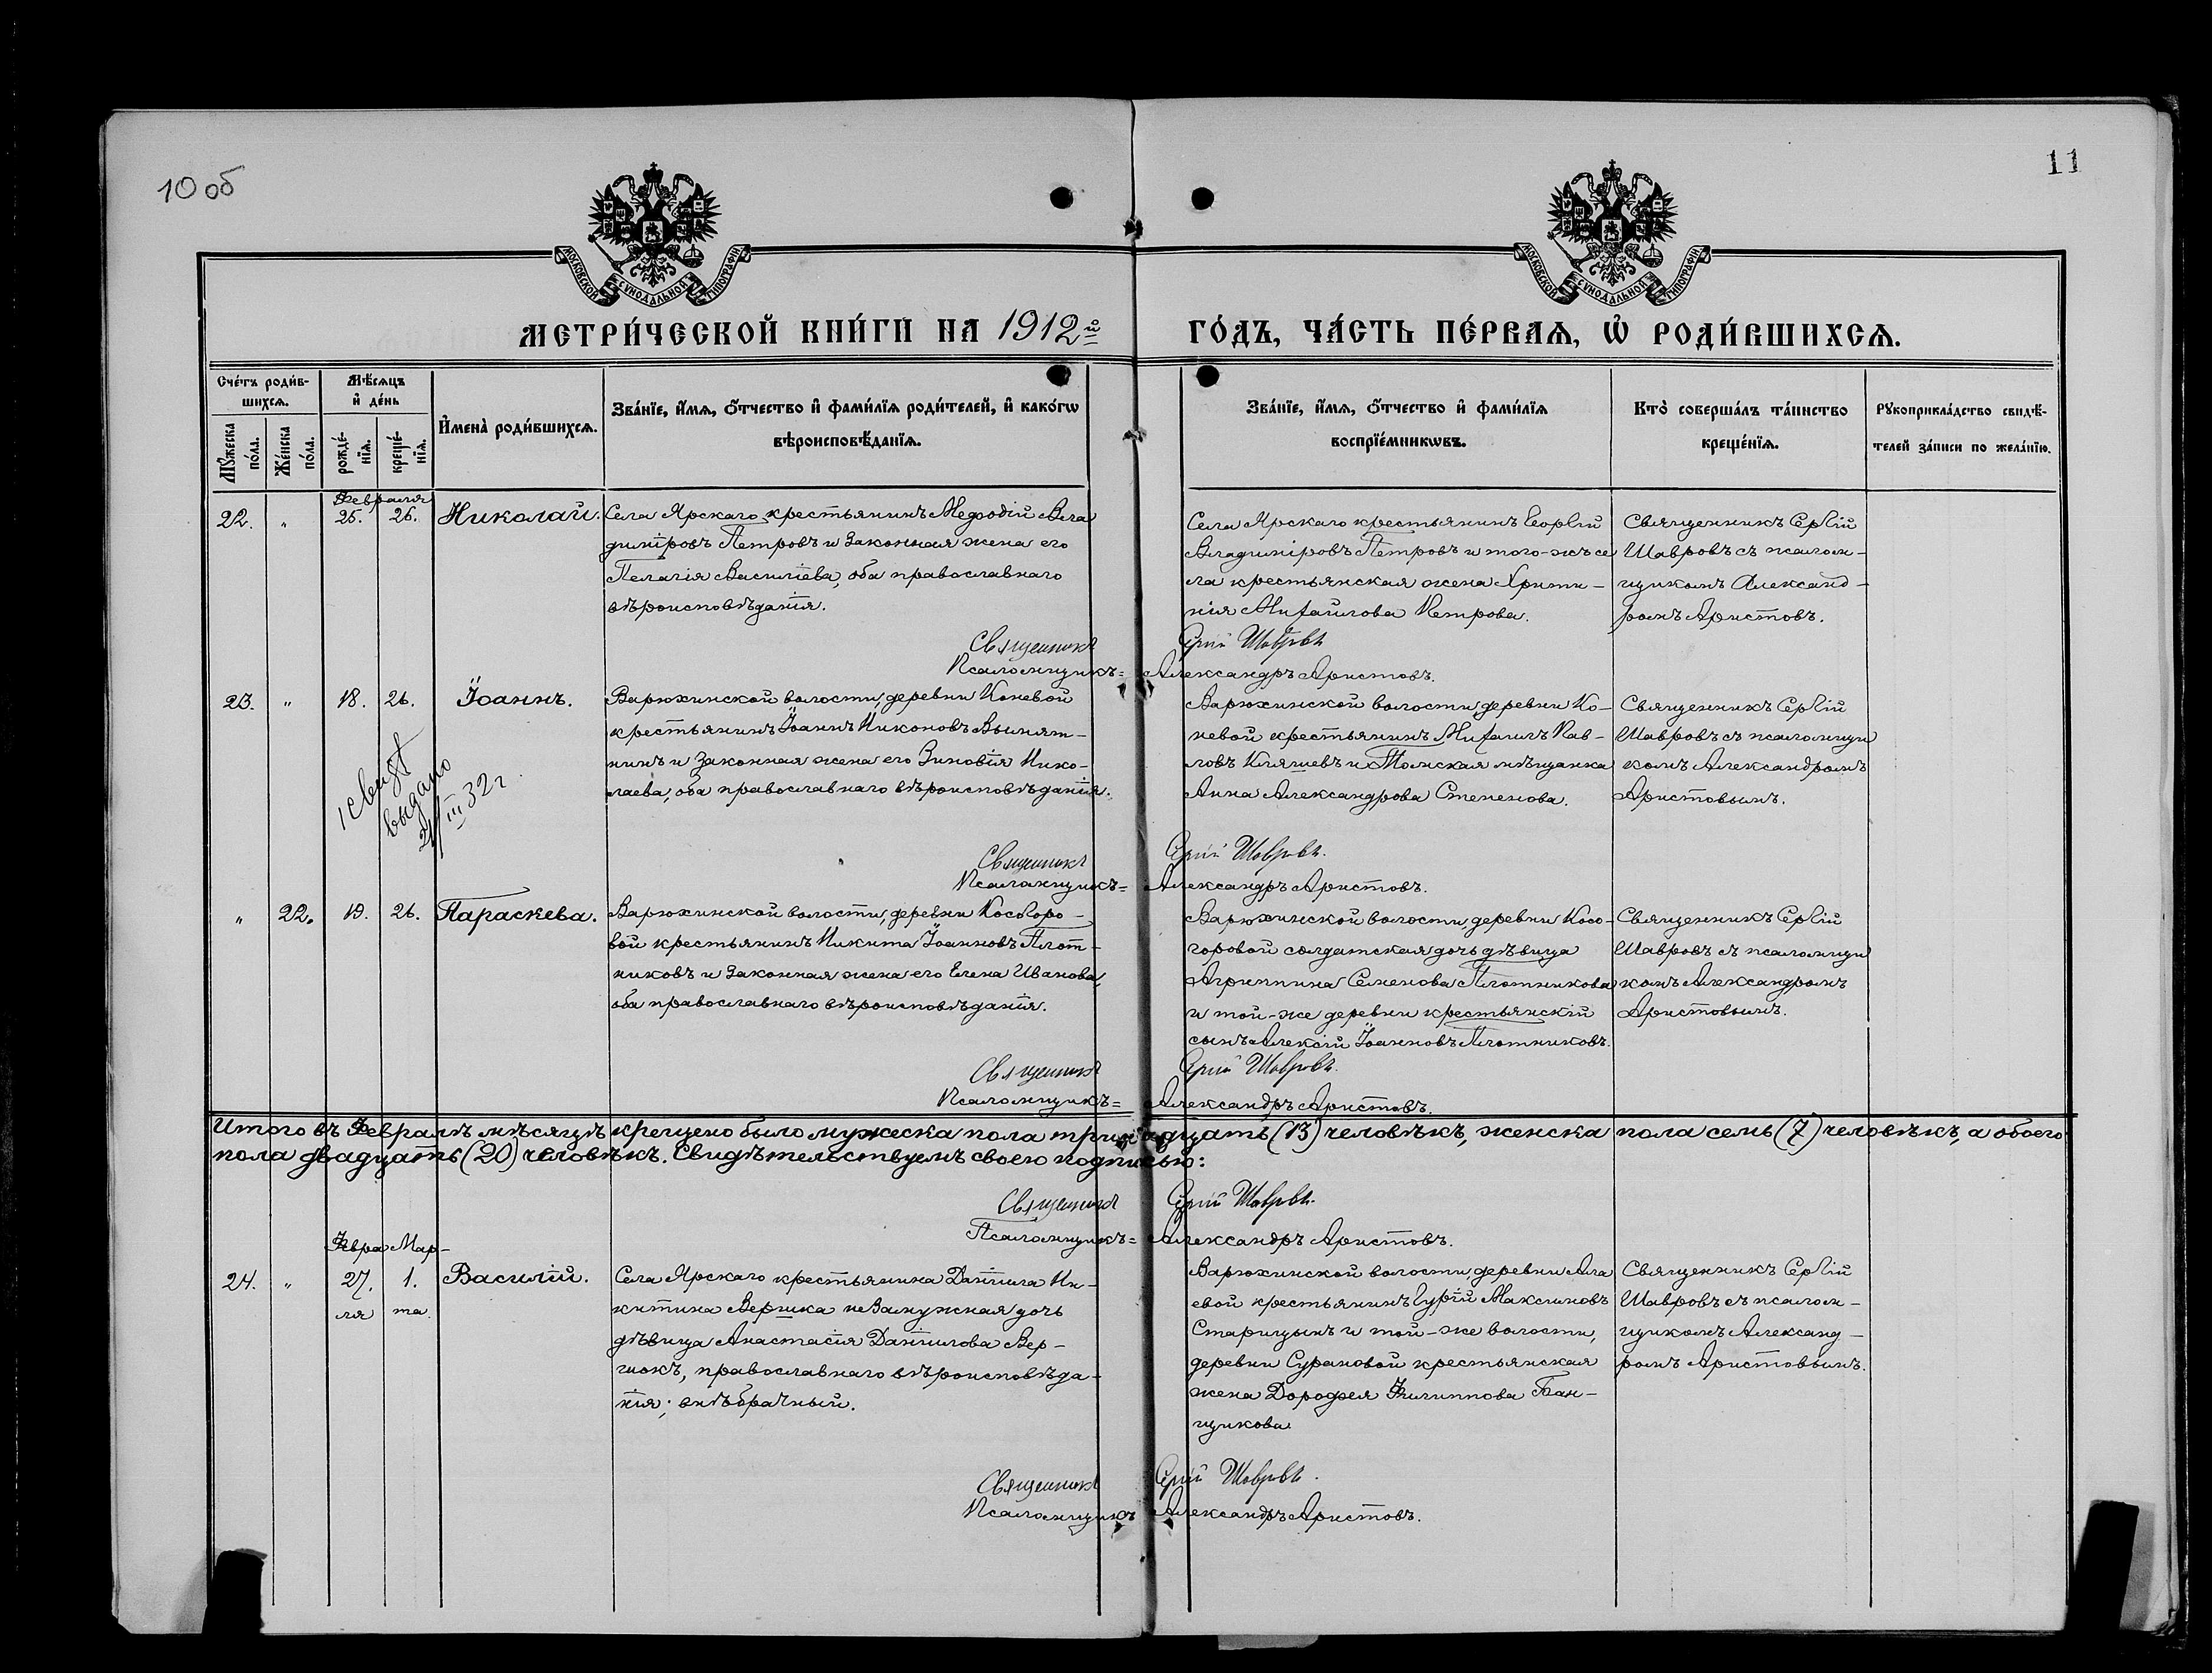 10 об
11
МОСКОВСКОЙ СѴНОДАЛЬНОЙ ТИПОГРАФІИ
МОСКОВСКОЙ СѴНОДАЛЬНОЙ ТИПОГРАФІИ
МЕТРИ́ЧЕСКОЙ КНИ́ГИ НА 1912й
ГО́ДЪ, ЧА́СТЬ ПЕ́РВАѦ, Ѡ҆ РОДИ́ВШИХСѦ.
Сче́тъ роди́в-
шихсѧ.
Мꙋ́жеска
по́ла.
Же́нска
по́ла.
Мѣ́сѧцъ
и҆ де́нь
рожде́-
нїѧ.
креще́-
нїѧ.
И҆мена̀ роди́вшихсѧ.
Зва́нїе, и҆́мѧ, ѻ҆́тчество и҆ фами́лїѧ роди́телей, и҆ како́гѡ
вѣроисповѣ́данїѧ.
Зва́нїе, и҆́мѧ, ѻ҆́тчество и҆ фами́лїѧ
воспрїе́мникѡвъ.
Кто̀ соверша́лъ та́инство
креще́нїѧ.
Рꙋкоприкла́дство свидѣ́-
телей за́писи по жела́нїю.
Февраля
22. „ 25. 26. Николай.
Села Ярскаго крестьянинъ Меѳодій Вла
диміровъ Петровъ и законная жена его
Пелагія Василіева, оба православнаго
вѣроисповѣданія.
Села Ярскаго крестьянинъ Георгій
Владиміровъ Петровъ и того-жъ се
ла крестьянская жена
нія Михайлова Петрова.
Священникъ Сергій
Шавровъ съ псалом-
щикомъ Александ-
ромъ Аристовъ.
Священникъ Сергій Шавровъ
Псаломщикъ= Александръ Аристовъ.
23. „ 18. 26. Іоаннъ.
Варюхинской волости, деревни Коневой
крестьянинъ Іоаннъ Никоновъ Вымят-
нинъ и законная жена его Зиновія Нико-
лаева, оба православнаго вѣроисповѣданія.
Варюхинской волости, деревни Ко-
невой крестьянинъ Михаилъ Пав-
ловъ Кляшевъ и Томская мѣщанка
Анна Александрова Степенова.
Священникъ Сергій
Шавровъ съ псаломщи
комъ Александромъ
Аристовымъ.
1 свид
выдано
21/III 32 г
Священникъ Сергій Шавровъ.
Псаломщикъ= Александръ Аристовъ.
„ 22. 19. 26. Параскева.
Варюхинской волости, деревни Косогоро-
вой крестьянинъ Никита Іоанновъ Плот-
никовъ и законная жена его Елена Иванова,
оба православнаго вѣроисповѣданія.
Варюхинской волости, деревни Косо-
горовой солдатская дочь дѣвица
Агриппина Семенова Плотникова
и той-же деревни крестьянскій
сынъ Алексій Іоанновъ Плотниковъ.
Священникъ Сергій
Шавровъ съ псаломщи
комъ Александромъ
Аристовымъ.
Священникъ Сергій Шавровъ.
Псаломщикъ= Александръ Аристовъ.
Итого въ Февралѣ мѣсяцѣ крещено было мужеска пола тринадцать (13) человѣкъ, женска пола семь (7) человѣкъ, а обоего
пола двадцать (20) человѣкъ. Свидѣтельствуемъ своею подписью:
Священникъ Сергій Шавровъ.
Псаломщикъ= Александръ Аристовъ.
Февра Мар-
24. „ 27. 1. Василій.
ля та.
Села Ярскаго крестьянина Даніила Ни-
китина Вершка незамужняя дочь
дѣвица Анастасія Даніилова Вер-
шокъ, православнаго вѣроисповѣда-
нія; внѣбрачный.
Варюхинской волости, деревни Ала
евой крестьянинъ Гурій Максимовъ
Старицынъ и той-же волости,
деревни Сурановой крестьянская
жена Дорофея Филиппова Бан-
щикова
Священникъ Сергій
Шавровъ съ псалом-
щикомъ Александ-
ромъ Аристовымъ.
Священникъ Сергій Шавровъ.
Псаломщикъ Александръ Аристовъ.